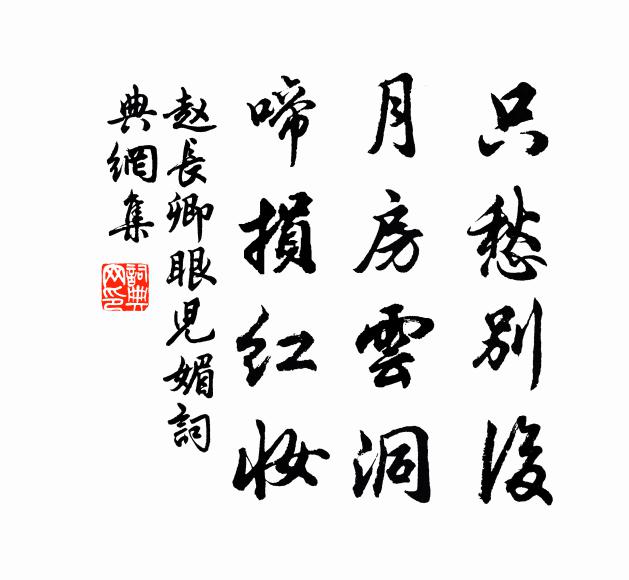 只愁别後
月房雲洞
啼損红妆
赵長卿眼児媚詞
典網集
詞典
网印